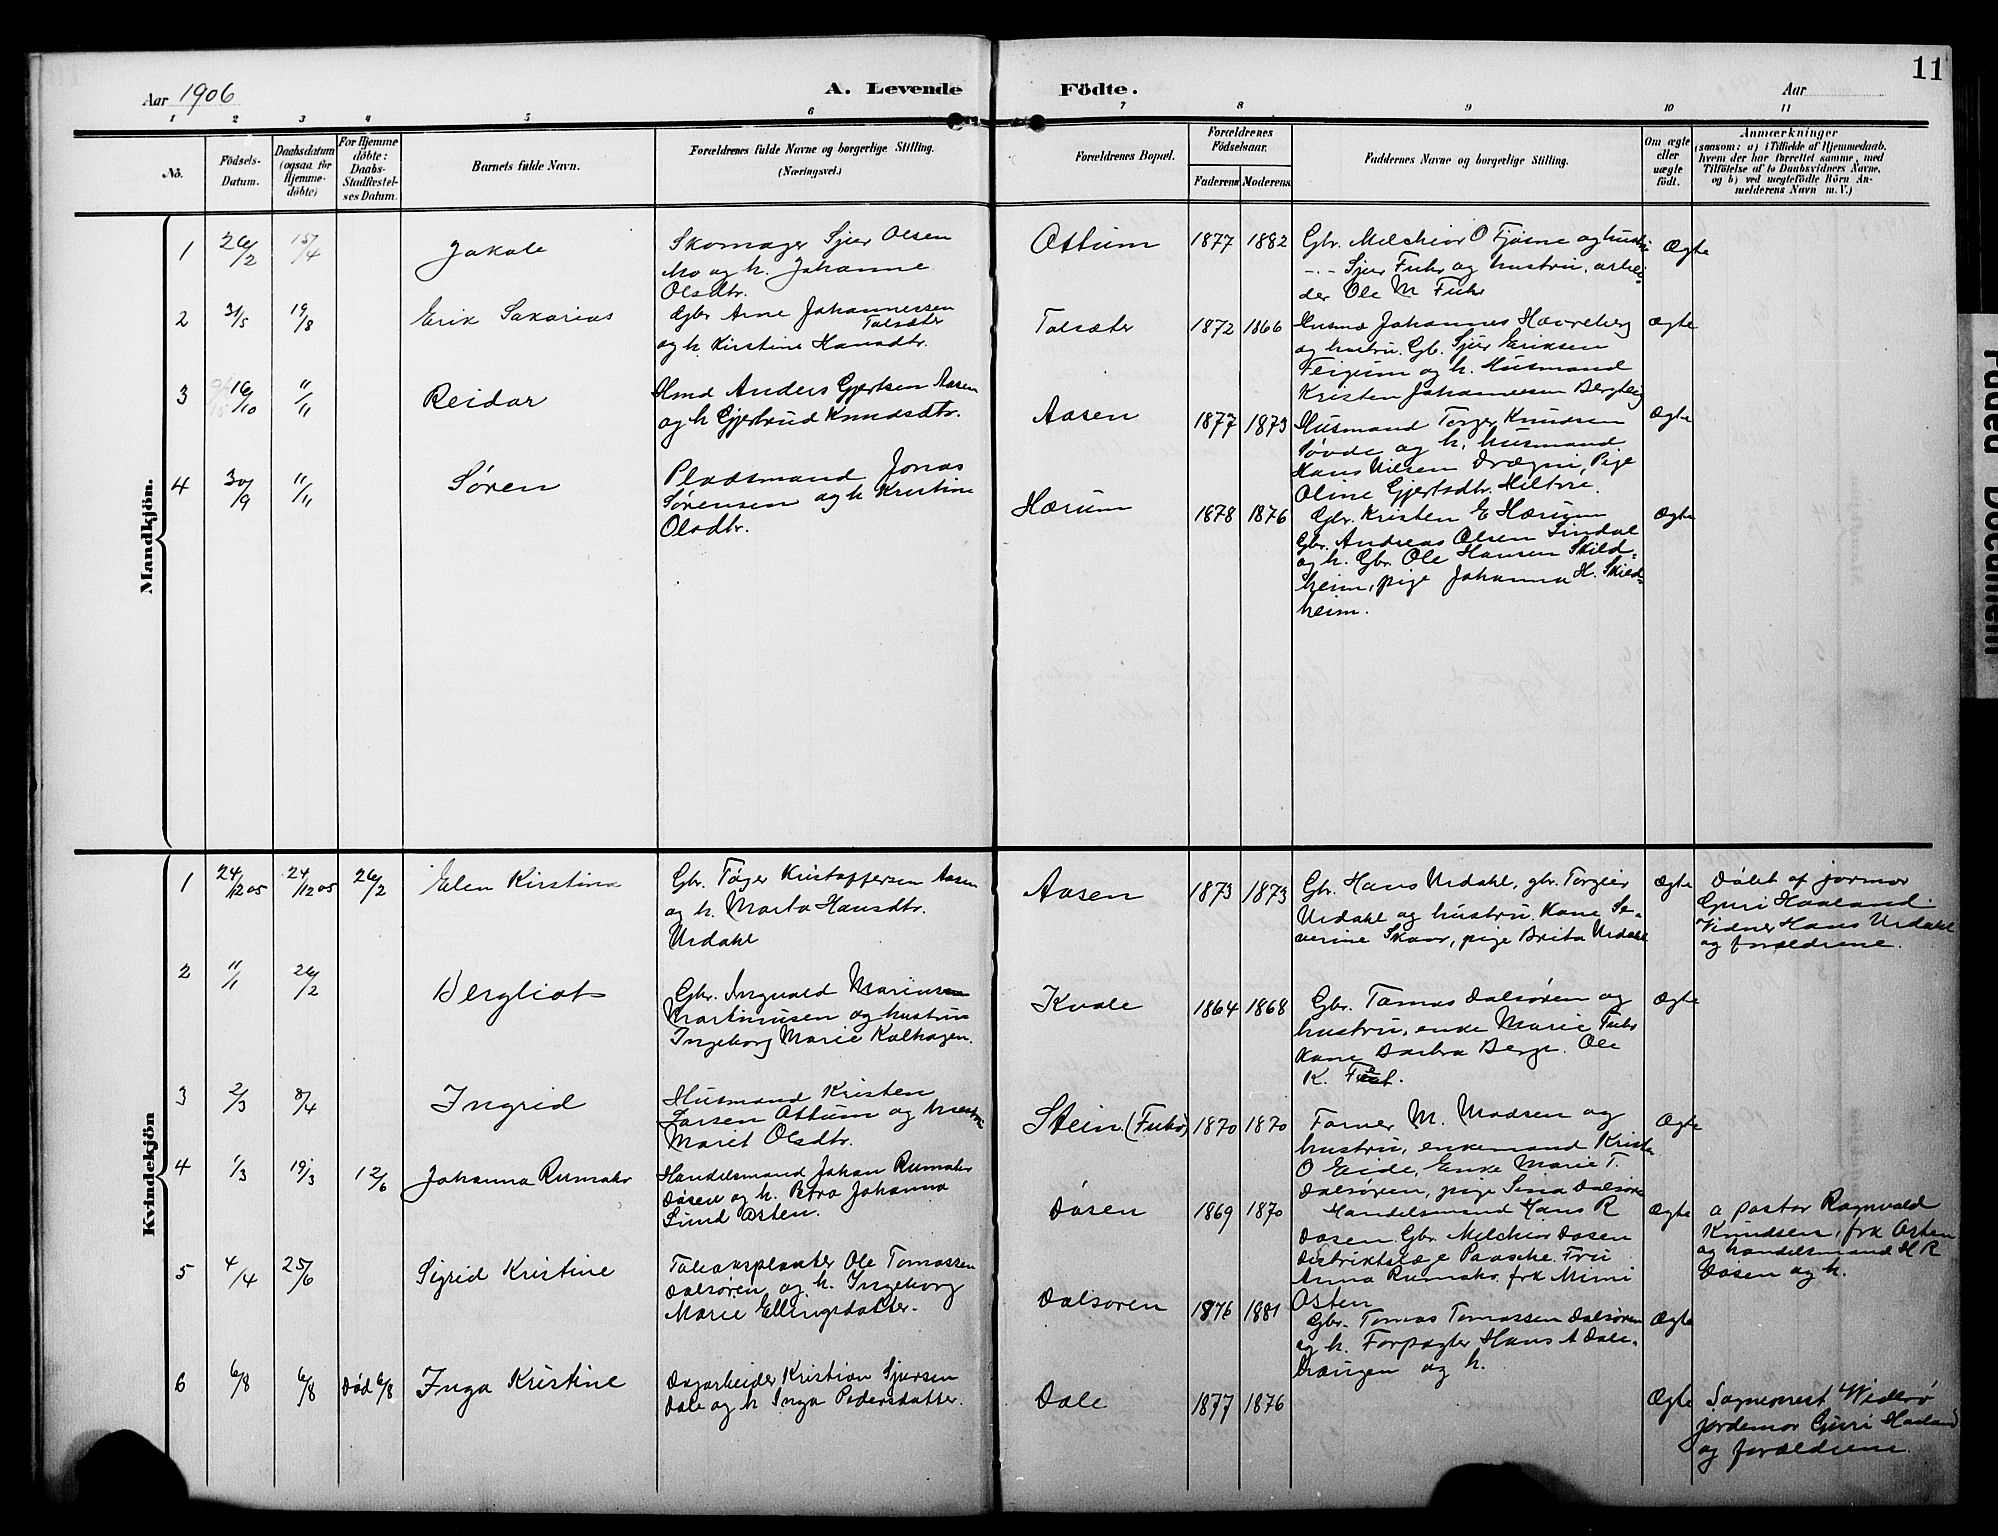 11
Aar 1906
A. Levende
Födte.
Aar
1 2 3 4 5 6 7 8 9 10 11
No.
Födsels-Datum.
Daabsdatum (ogsaa for Hjemme-döbte)
For Hjemme döbte: Daabs-Stadfæstel-ses Datum.
Barnets fulde Navn.
Forældrenes fulde Navne og borgerlige Stilling.
(Næringsvei.)
Forældrenes Bopæl.
Forældrenes Födselsaar.
Faderens Moderens
Faddernes Navne og borgerlige Stilling.
Om ægte eller uægte födt.
Anmærkninger
(saasom: a) i Tilfælde af Hjemmedaab,
hvem der har forrettet samme, med
Tilföielse af to Daabsvidners Navne,
og b) ved uægtefödte Börn An-
melderens Navn m. V.)
Mandkjön.
1 26/2 15/4 Jakob
Skomager Sjur Olsen
Mo og h. Johanne
Olsdtr.
Ottum 1877 1882
Gbr. Melchior O Fjøsne og hustru
-"- Sjur Fuhr og hustru, arbei-
der Ole M Fuhr
Ægte
2 31/5 19/8 Erik Sakarias
Gbr Arne Johannessen
Talsæter
og h. Kirstine Hansdtr.
Talsæter 1872 1866
Husmd Johannes Havreberg
og hustru. Gb. Sjur Eriksen
Feigum og h. Husmand
Kristen Johannesen Berglig
ægte
3 16/10 11/11 Reidar
Hmd Anders Gjertsen Aasen
og h Gjertrud Knudsdtr.
Aasen 1877 1873
Husmand Torger Knudsen
Søvde og h. husmand
Hans Nilsen Drægni, Pige
Oline Gjertsdtr. Hiltne.
Ægte
4 30/9 11/11 Søren
Pladsmand Jonas
Sørensen og h Kristine
Olsdtr.
Hærum 1878 1876
Gbr. Kristen E Hærum
Gbr. Andreas Olsen Lindal
og h. Gbr. Ole Hansen Skild-
heim, pige Johanna H. Skild-
heim.
Ægte
Kvindekjön
1 24/12 05 24/12 05 26/2 Elen Kirstina
Gbr. Tøger Kristoffersen Aasen
og h. Marta Hansdtr.
Urdahl
Aasen 1873 1873
Gbr. Hans Urdahl, gbr. Torgeir
Urdahl og hustru. Kone Se-
verine Skaar, pige Brita Urdahl
Ægte
Døbt af jormor
Guri Haaland.
Vidner Hans Urdahl
og forældrene.
2 11/1 26/2 Bergliot
Gbr. Ingvald
Martinusen og hustru
Ingeborg Marie Kalhagen.
Kvale 1864 1868
Gbr. Tomas Dalsøren og
hustru, enke Marie Fuhr
Kone Barbra Berge. Ole
K.
Ægte
3 2/3 8/4 Ingrid
Husmand Kristen
Larsen Ottum og hustru
Marit Olsdtr.
Stein (Fuhr) 1870 1870
Farver M. Madsen og
hustru, enkemand Kristen
O Eide, Enke Marie T.
Dalsøren, pige Sina Dalsøren
Ægte
4 1/3 19/3 12/6 Johanna Rumohr
Handelsmand Johan Rumohr
Døsen og h. Petra Johanna
Lund Østen.
Døsen 1869 1870
Handelsmand Hans R
Døsen. Gbr. Melchior Døsen
Distriktslæge Paasche. Fru
Anna Rumohr, frk Mimi
Østen
Ægte
a pastor Ragnvald
Knudsen, frk Østen
og handelsmand H R
Døsen og h.
5 4/4 25/6 Sigrid Kristine
Ole Tomassen
Dalsøren og h. Ingeborg
Marie Ellingsdatter.
Dalsøren 1876 1881
Gbr. Tomas Tomassen Dalsøren
og h. Forpagter Hans A Dale-
haugen og h.
Ægte
6 6/8 6/8 Død 6/8 Inga Kristine
Dagarbeider Kristian Sjursen
Dale og h Inga Pedersdatter.
Dale 1877 1876
Ægte
Sogneprest Widerø
jordemor Guri Haaland
og forældrene.
Faded Document